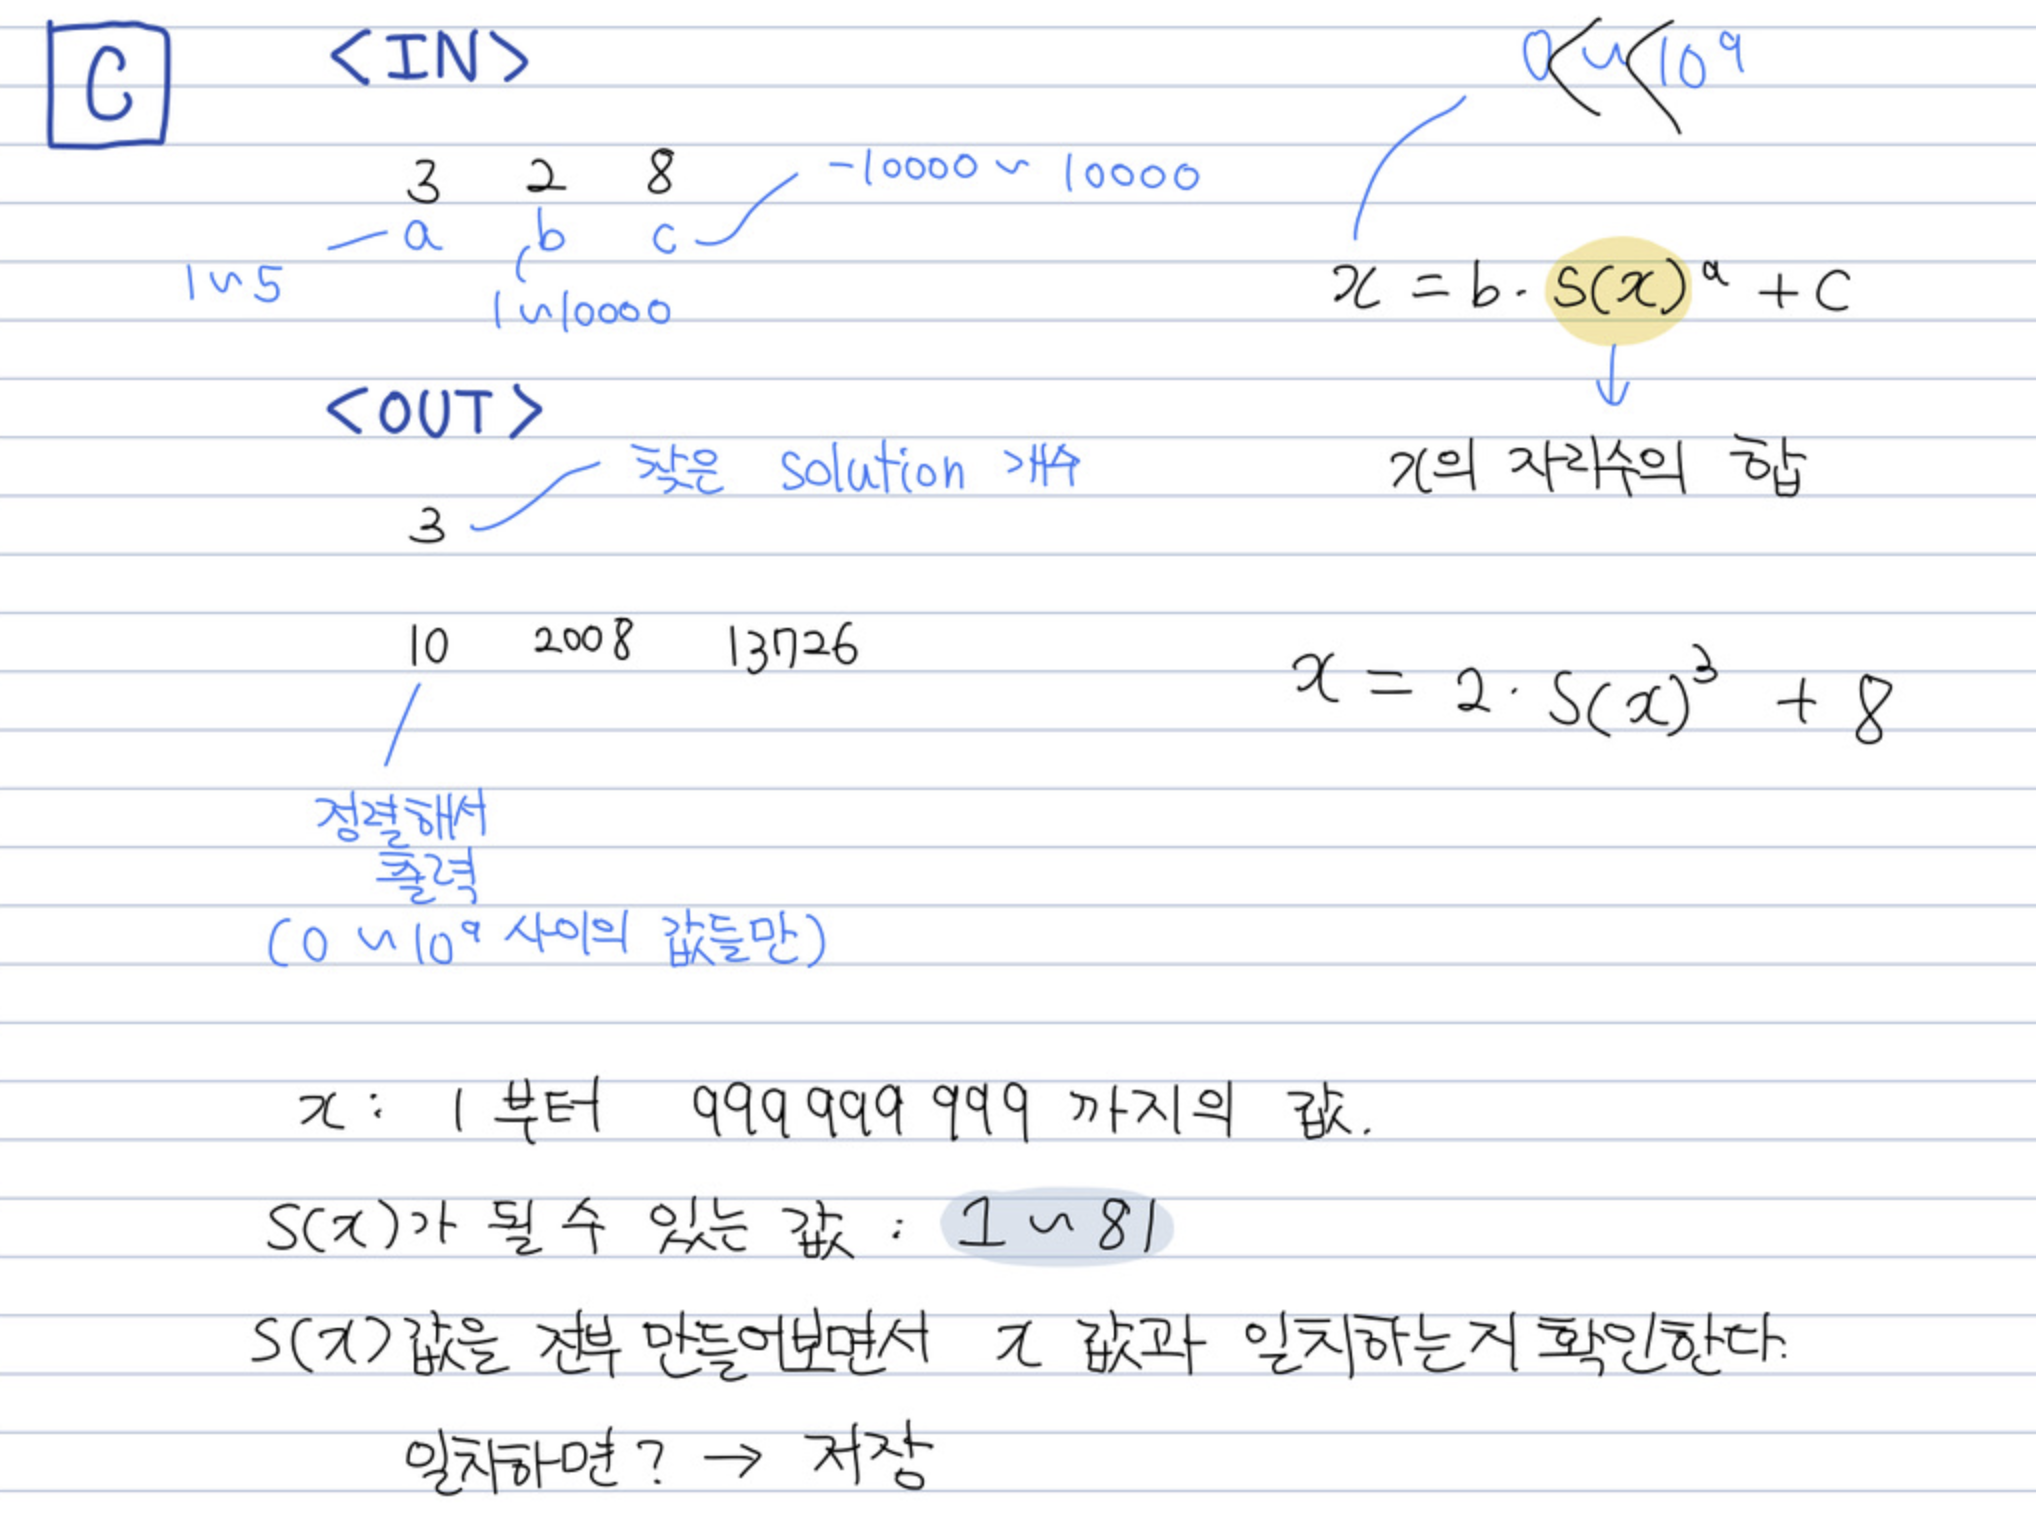 C
<IN>
0<~<10⁹
3 2 8
-10000 ~ 10000
a b c
1~5
1~10000
x = b · s(x)ᵃ + c
<OUT>
찾은 solution 개수
x의 자리수의 합
3
10 2008 13726
x = 2 · s(x)³ + 8
정렬해서
출력
(0 ~ 10⁹ 사이의 값들만)
x : 1 부터 999 999 999 까지의 값.
s(x)가 될 수 있는 값 : 1 ~ 81
s(x) 값을 전부 만들어보면서 x 값과 일치하는지 확인한다.
일치하면? → 저장